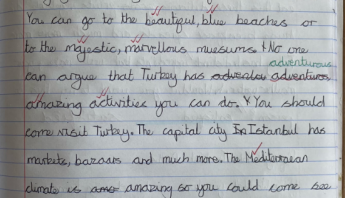 You can go to the beautiful, blue beaches or
to the majestic, marvellous museums. No one
adventurous
can argue that Turkey has adventures
amazing activities you can do. You should
come visit Turkey. The capital city In Istanbul has
markets, bazaars and much more. The Mediterranean
climate is amazing so you could come see